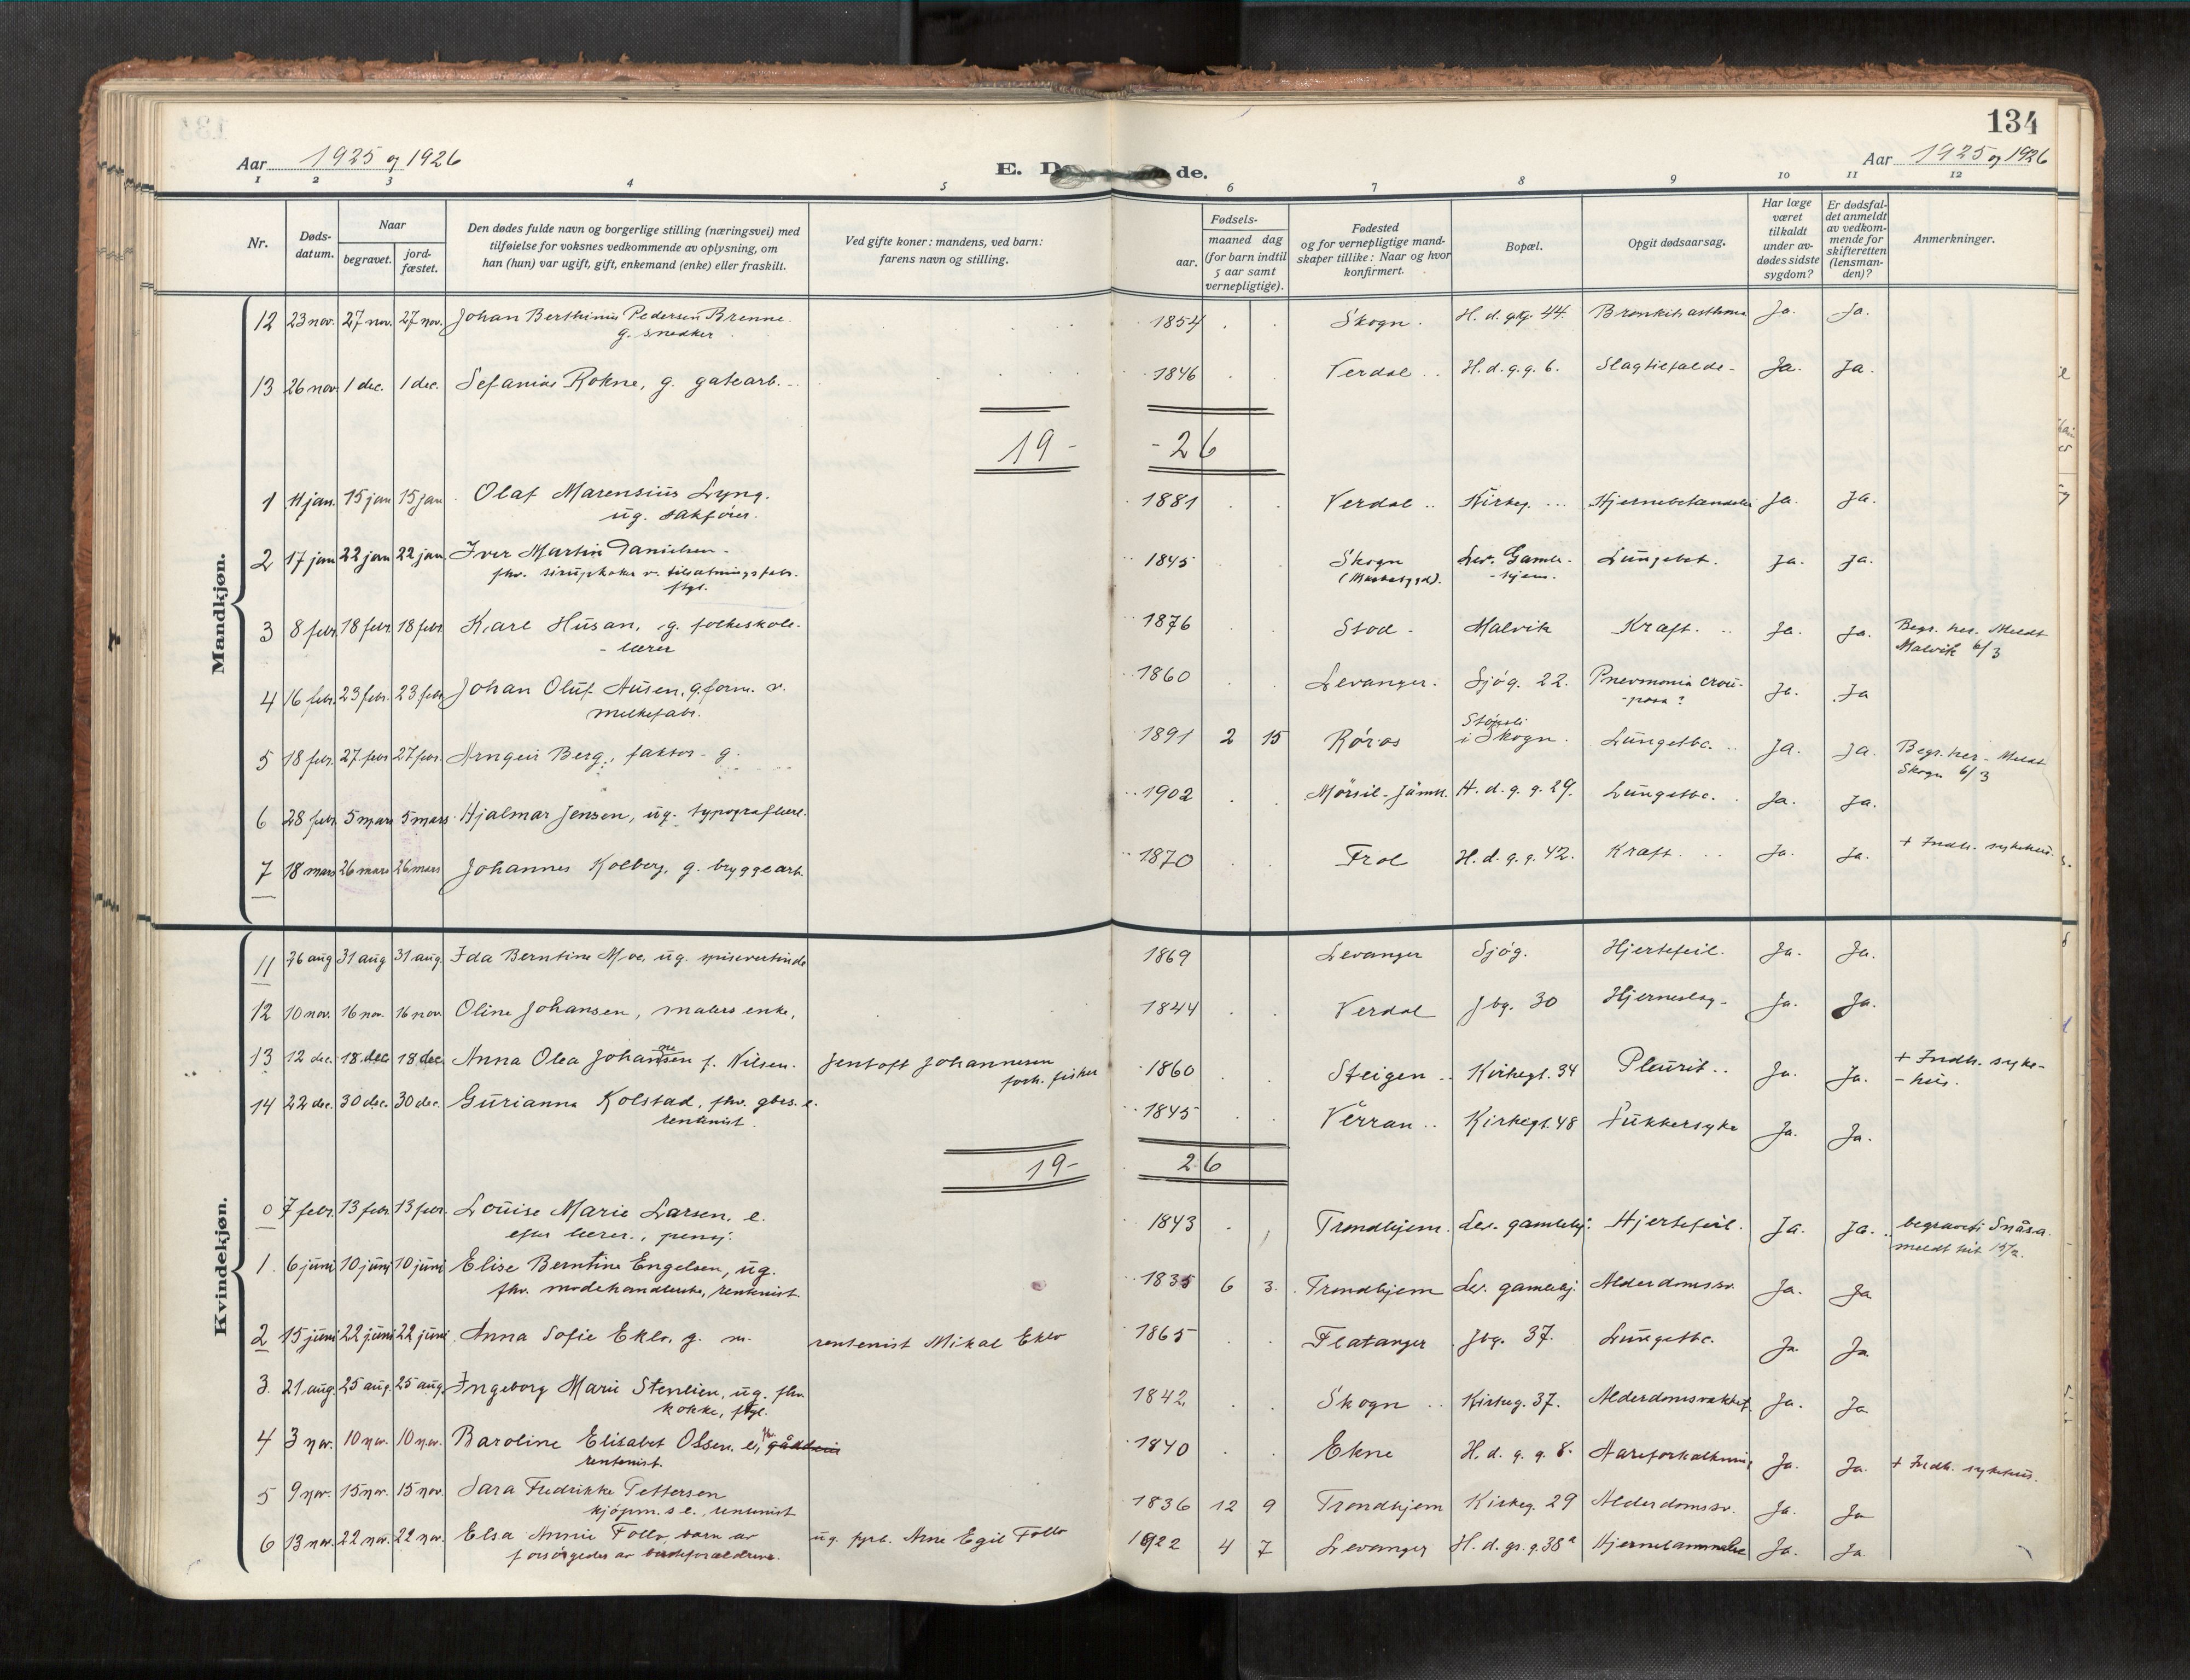 134
Aar 1925 og 1926
E. D de.
Aar 1925 og 1926
1 2 3 4 5 6 7 8 9 10 11 12
Nr.
Døds-
datum.
Naar
begravet.
jord-
fæstet.
Den dødes fulde navn og borgerlige stilling (næringsvei) med
tilføielse for voksnes vedkommende av oplysning, om
han (hun) var ugift, gift, enkemand (enke) eller fraskilt.
Ved gifte koner: mandens, ved barn:
farens navn og stilling.
Fødsels-
aar.
maaned dag
(for barn indtil
5 aar samt
vernepligtige).
Fødested
og for vernepligtige mand-
skaper tillike: Naar og hvor
konfirmert.
Bopæl.
Opgit dødsaarsag.
Har læge
været
tilkaldt
under av-
dødes sidste
sygdom?
Er dødsfal-
det anmeldt
av vedkom-
mende for
skifteretten
(lensman-
den)?
Anmerkninger.
Mandkjøn.
12 23 nov. 27 nov. 27 nov. Johan Berthinius Pedersen Brenne. 1854 Skogn. H. d. g.g. 44. Bronkit asthma Ja. Ja.
g. snedker.
13 26 nov. 1 dec. 1 dec. Sefanias Rokne, g. gatearb. 1846 Verdal H. d. g. g. 6. Slagtilfælde Ja. Ja.
19 - - 26
1 11 jan. 15 jan 15 jan Olaf Marensius Lyng. 1881 Verdal Kirkeg. Hjernebetændelse Ja. Ja.
ug. sakfører.
2 17 jan 22 jan 22 jan. Iver Martin Danielsen 1845 Skogn Lev. Gamle- Lungebet. Ja. Ja.
fhv. sirupkoker v. tilsætningsfabr. (Markabygd). -hjem.
ftgl.
3 8 febr. 18 febr. 18 febr. Karl Husan, g. folkeskole- 1876 Stod - Malvik Kræft. Ja. Ja. Begr. her. Meldt
- lærer Malvik 6/3
4 16 febr. 23 febr. 23 febr Johan Oluf Ausen, g. form. v. 1860 Levanger. Sjøg. 22. Pnevmonia crou- Ja. Ja
melkefabr. -posa?
5 18 febr. 27 febr 27 febr. Arngeir Berg, faktor - g. 1891 2 15 Røros i Skogn. Lungetbc. Ja. Ja. Begr. her - Meldt
Skogn 6/3
6 28 febr. 5 mars 5 mars Hjalmar Jensen, ug. typograflærl. 1902 Mørsil - Jämtl. H. d. g. g. 29. Lungetbc. Ja. Ja.
7 18 mars 26 mars 26 mars Johannes Kolberg, g. bryggearb. 1870 Frol H. d. g. g. 42. Kræft. Ja. Ja. + Indh. sykehus.
Kvindekjøn.
11 26 aug 31 aug 31 aug. Ida Berntine Moe, ug. spisevertinde 1869 Levanger Sjøg. Hjertefeil. Ja. Ja.
12 10 nov. 16 nov. 16 nov. Oline Johansen, malers enke, 1844 Verdal Jbg. 30 Hjerneslag - Ja. Ja.
13 12 dec. 18 dec 18 dec. Anna Olea Johansen f. Nilsen. Jentoft Johannesen 1860 Steigen Kirkegt. 34 Pleurit Ja. Ja. + Indh. syke-
forh. fisker - hus.
14 22 dec. 30 dec. 30 dec. Gurianna Kolstad, fhv. gbrs. e. 1845 Verran Kirkegt. 48 Sukkersyke Ja. Ja.
rentenist.
19 - 26
0 7 febr. 13 febr. 13 febr. Louise Marie Larsen, e. 1843 Trondhjem. Lev. gamlehj. Hjertefeil. Ja. Ja. begravet i Snåsa.
efter lærer, pensj. meldt hit
1. 6 juni 10 juni 10 juni Elise Berntine Engelsen, ug. 1835 6 3. Trondhjem Lev. gamlehj. Alderdomssv. Ja. Ja
fhv. modehandlerske, rentenist.
2 15 juni 22 juni 22 juni Anna Sofie Eklo, g. m. rentenist Mikal Eklo 1865 Flatanger Jbg. 37. Lungetbc. Ja Ja
3. 21 aug. 25 aug. 25 aug. Ingeborg Marie Stenlien, ug. fhv. 1842. Skogn Kirkeg. 37. Alderdomssvakhet. Ja. Ja
kokke, ftgl.
4 3 nov. 10 nov. 10 nov. Baroline Elisabet Olsen, e, fhv. 1840 Ekne H. d. g. g. 8. Aareforkalkning Ja. Ja. + Indh. sykehus.
rentenist.
5 9 nov. 15 nov. 15 nov. Sara Fredrikke Pettersen 1836 12 9 Trondhjem Kirkeg. 29 Alderdomssv. Ja. Ja
kjøpm. s e., rentenist
6 13 nov. 22 nov. 22 nov. Elsa Annie Follo, barn av ug. fyrb. Arne Egil Follo 1922 4 7 Levanger H. d. gs. g. 38a Hjernelammelse Ja. Ja
forsørgedes av besteforældrene.